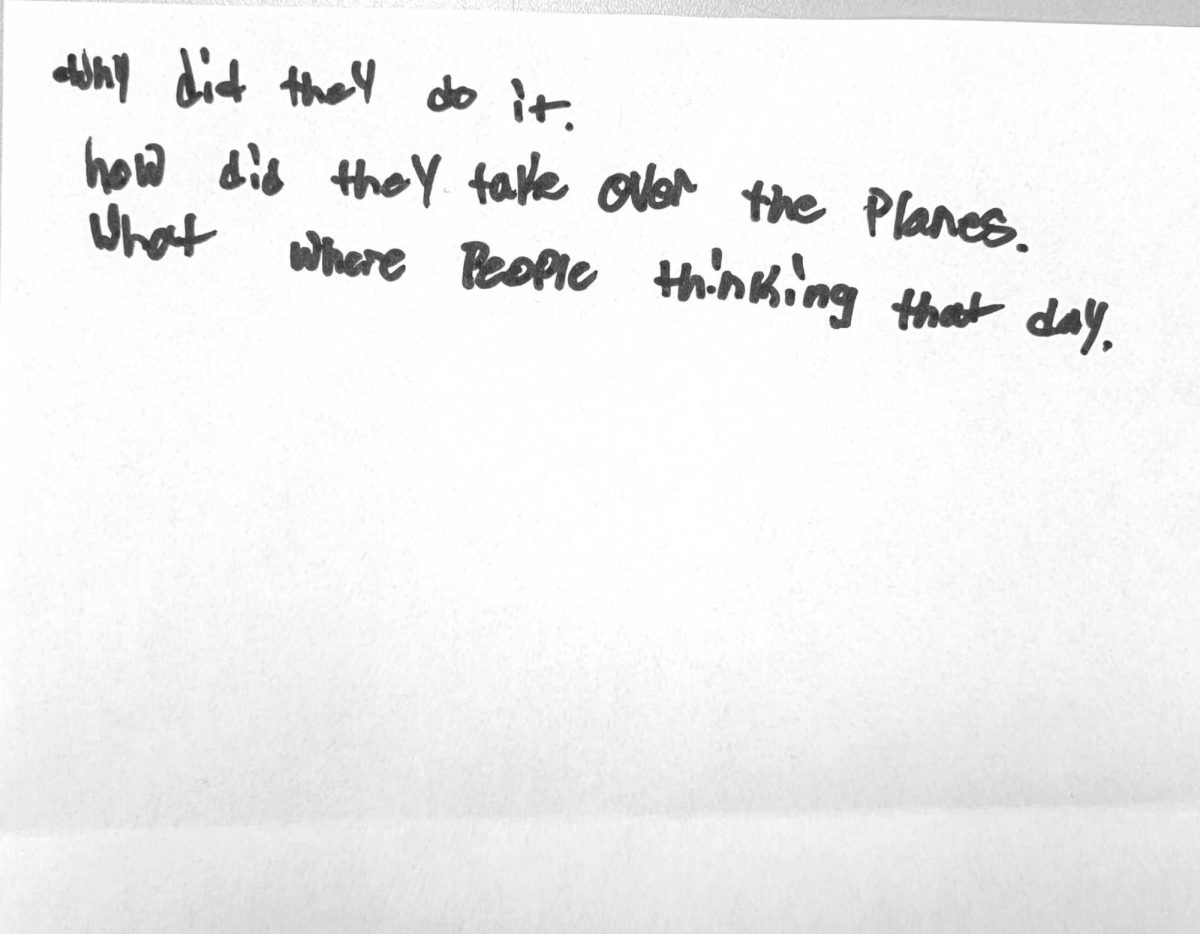 Why did they do it.
how did they take over the Planes.
What where People thinking that day.